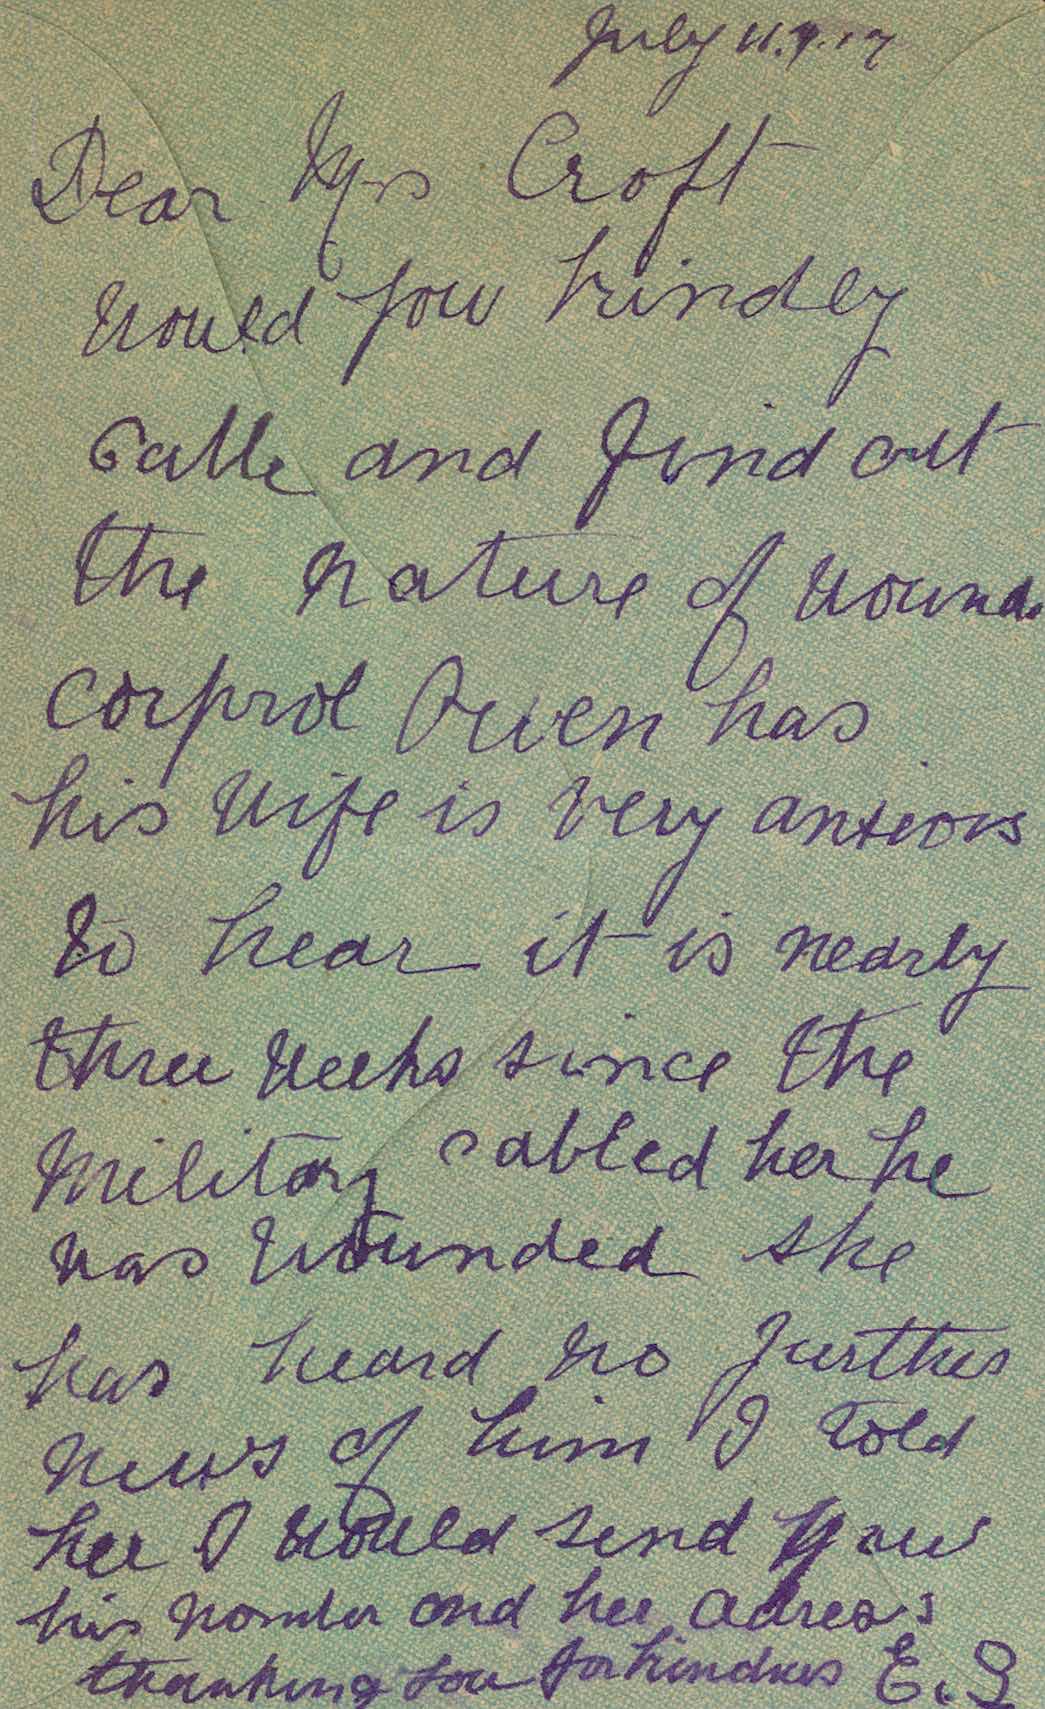 July 11.7.17
Dear Mrs Croft
Would you kindly
calle and find out
the nature of wounds
corprol Owen has
his wife is very anxious
to hear it is nearly
three weeks since the
Military cabled her he
was wounded she
has heard no further
news of him I told
her I would send you
his nomber and her adress
thanking you for kindness E.